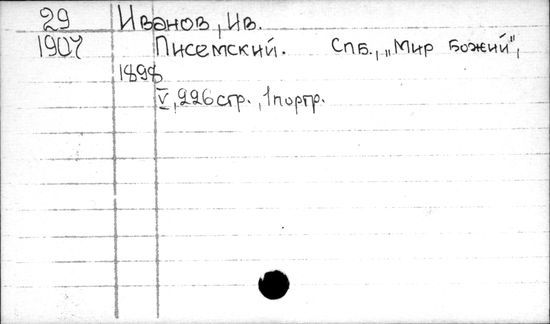 29 Иванов, Ив.
1907 Писемский. СПБ., „Мир Божий“,
1898
V, 226 стр., 1 портр.